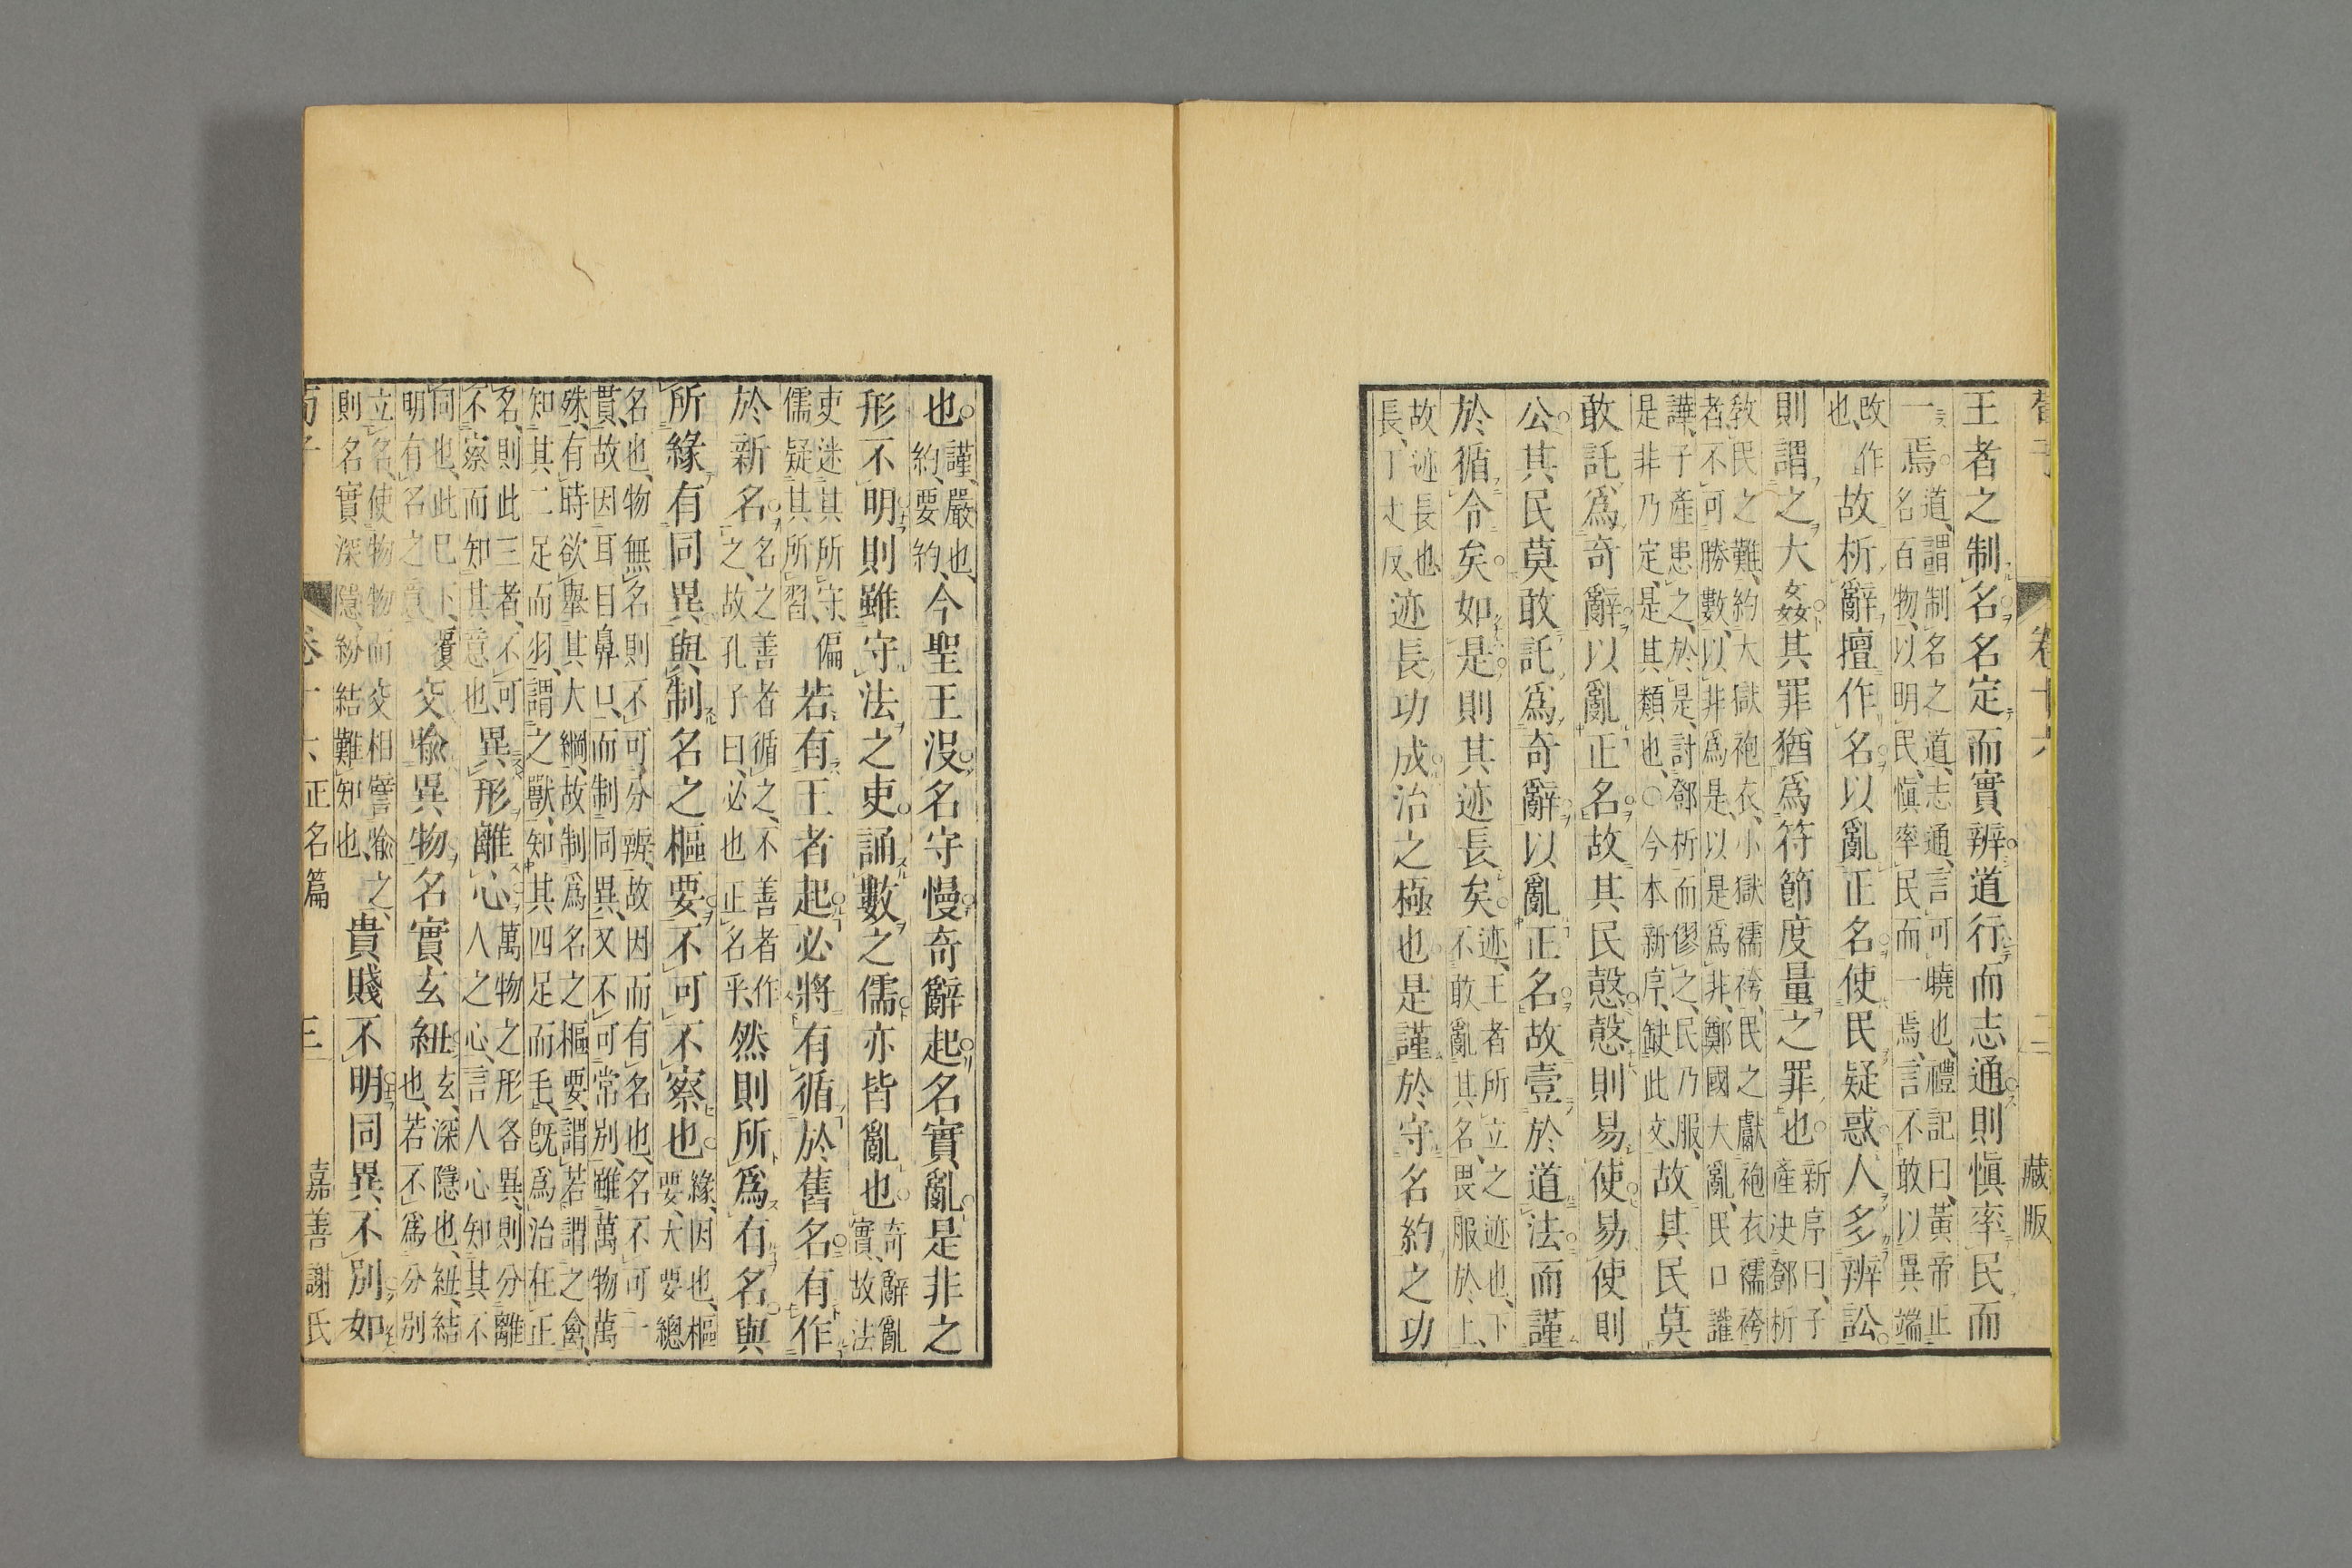 荀子 卷十六 二 藏版
王者之制名名定而實辨道行而志通則愼率民而
一焉道、謂制名之道、志通、言可曉也、禮記曰、黃帝正名百物、以明民、愼率民而一焉、言不敢以異端
改作也、故析辭擅作名以亂正名使民疑惑人多辨訟
則謂之大姦其罪猶爲符節度量之罪也新序曰、子產決鄧析
敎民之難、約大獄袍衣、小獄襦袴、民之獻袍衣襦袴者、不可勝數、以非爲是、以是爲非、鄭國大亂、民口讙
譁、子產患之、於是、討鄧析而僇之、民乃服、是非乃定、是其類也、○今本新序、缺此文、故其民莫
敢託爲奇辭以亂正名故其民愨愨則易使易使則
公其民莫敢託爲奇辭以亂正名故壹於道法而謹
於循令矣如是則其迹長矣迹、王者所立之迹也、下不敢亂其名、畏服於上、
故迹長也長、丁丈反、迹長功成治之極也是謹於守名約之功
也謹、嚴也、約、要約、今聖王沒名守慢奇辭起名實亂是非之
形不明則雖守法之吏誦數之儒亦皆亂也奇辭亂實、故法
吏迷其所守、偏儒疑其所習、若有王者起必將有循於舊名有作
於新名名之善者循之、不善者作之、故孔子曰、必也正名乎、然則所爲有名與
所緣有同異與制名之樞要不可不察也緣、因也、樞要、大要總
名也、物無名則不可分辨、故因而有名也、名不可一貫、故因耳目鼻口、而制同異、又不可常別、雖萬物萬
殊、有時欲擧其大綱、故制爲名之樞要、謂若謂之禽、知其二足而羽、謂之獸、知其四足而毛、旣爲治在正
名、則此三者、不可不察而知其意也、異形離心萬物之形各異、則分離人之心、言人心知其不
同也、此已下、覆明有名之意、交喩異物名實玄紐玄、深隱也、紐、結也、若不爲分別
立名、使物物而交相譬喩之、則名實深隱、紛結難知也、貴賤不明同異不別如
荀子 卷十六 正名篇 三 嘉善謝氏